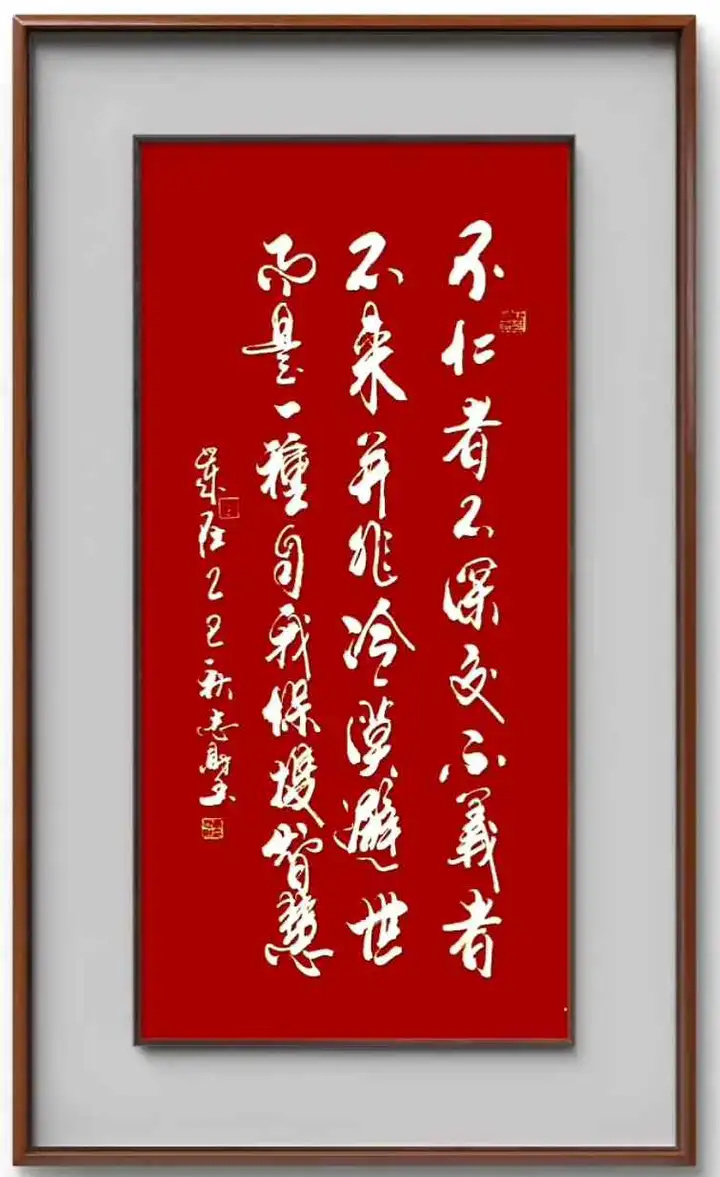 不仁者不深交不義者
不來并非冷漠避世
而是一種自我保護智慧
歲在乙巳秋志財書